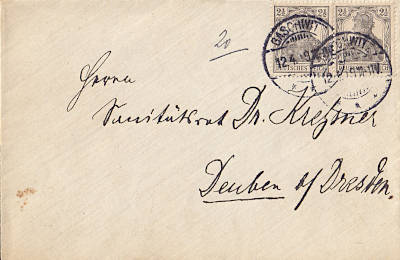 2½ 2½ 2½
GASCHWITZ
12.4.
20
Herrn
Sanitätsrat Dr. Kreßner
Deuben b/Dresden.